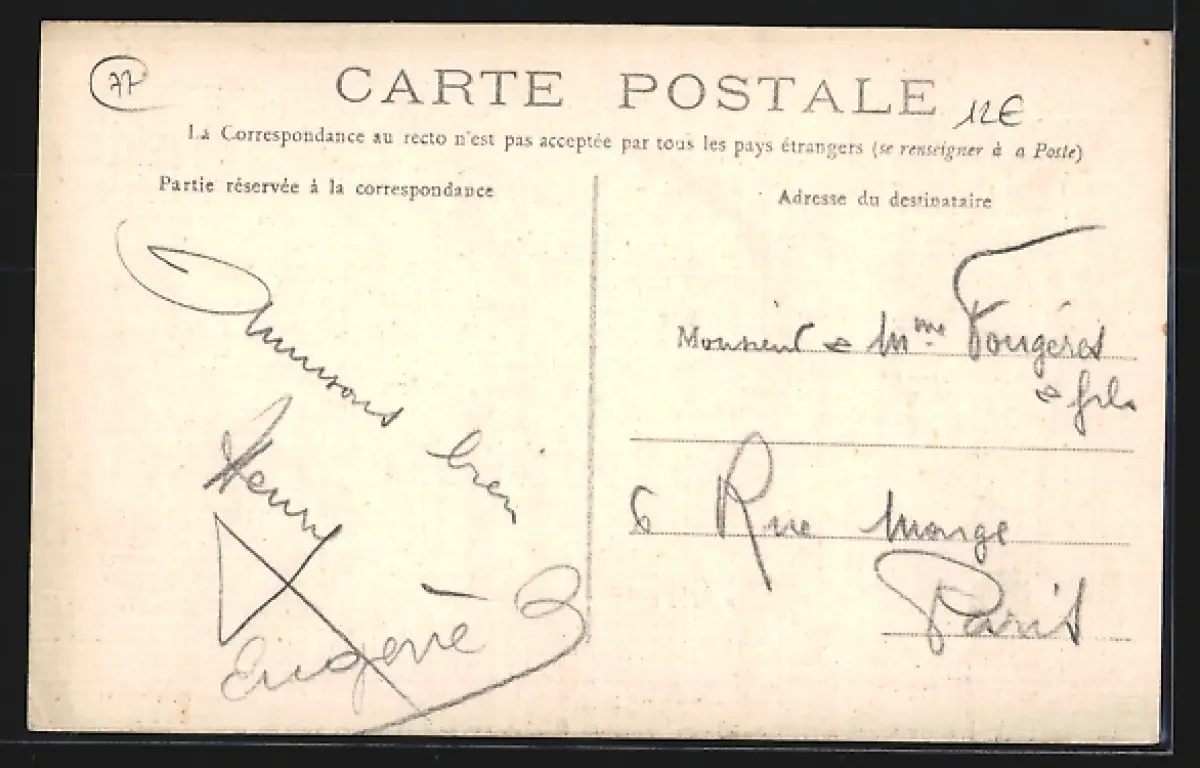 77
CARTE POSTALE
12€
La Correspondance au recto n'est pas acceptée par tous les pays étrangers (se renseigner à a Poste)
Partie réservée à la correspondance
Adresse du destinataire
bien
Henri
Eugénie
Monsieur & Mme Fougères
& fils
6 Rue Monge
Paris